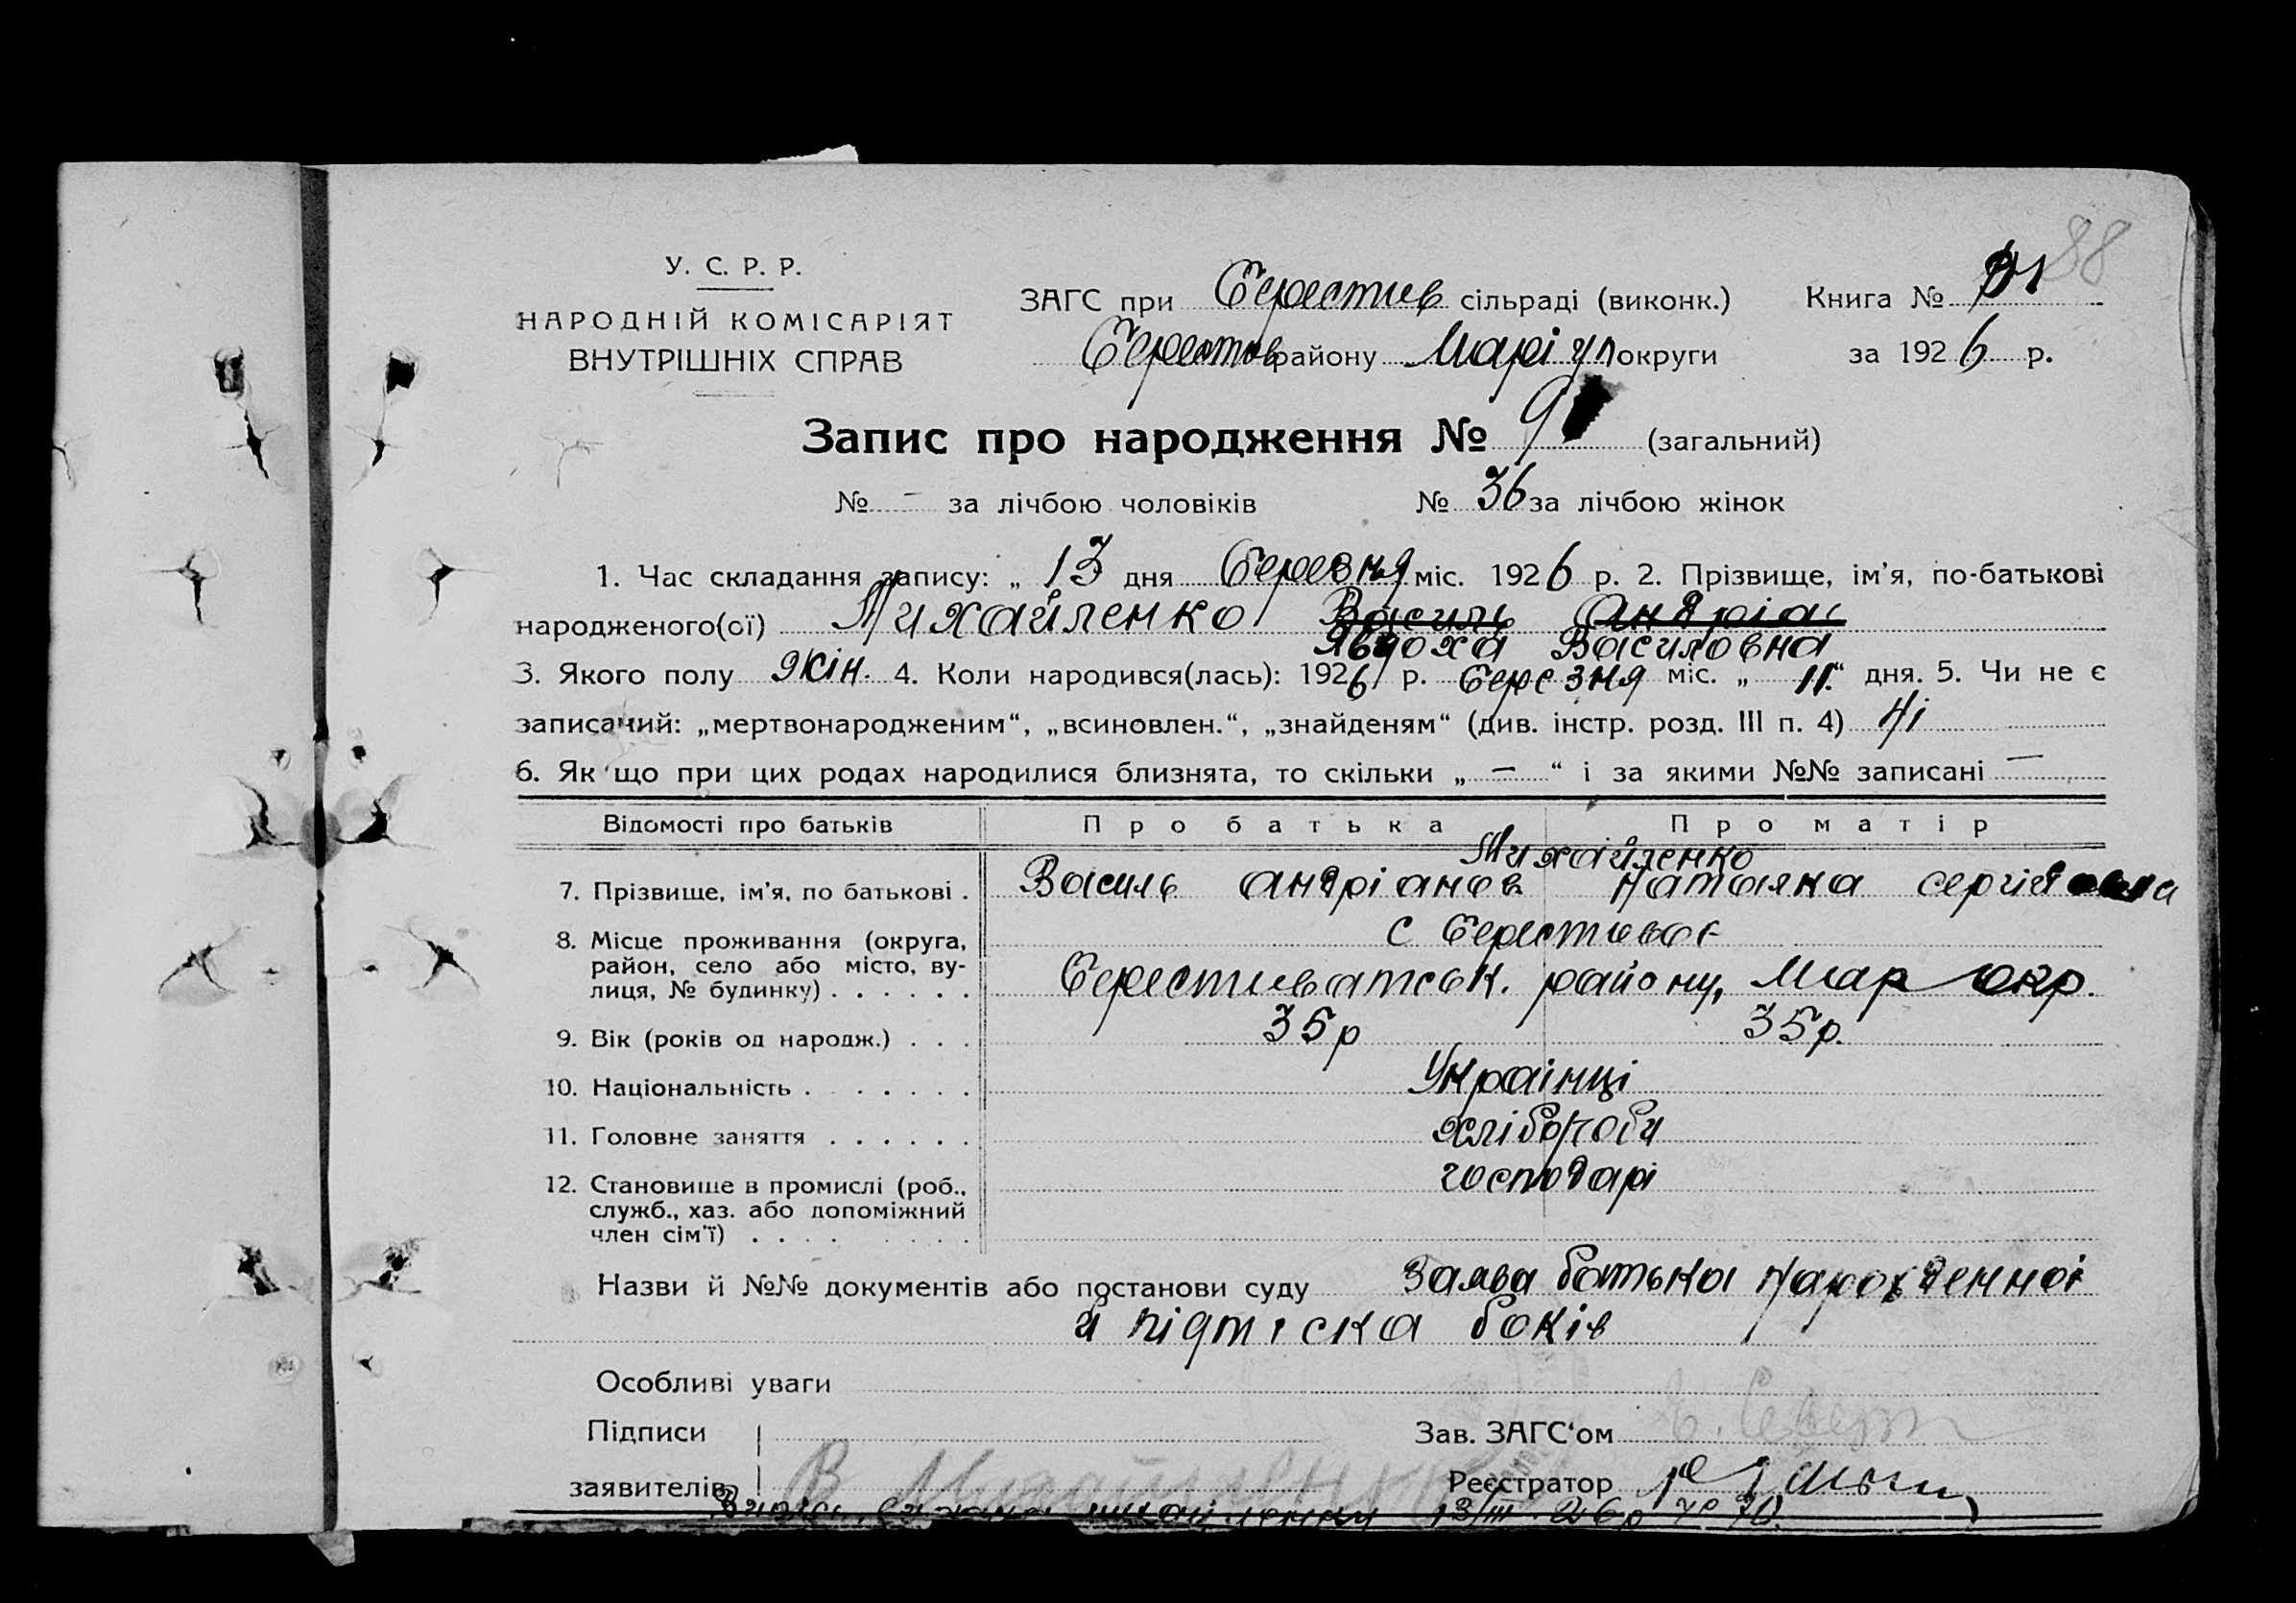 88
У. С. Р. Р.
НАРОДНІЙ КОМІСАРІЯТ
ВНУТРІШНІХ СПРАВ
ЗАГС при Берестив сільраді (виконк.) Книга №
Берестов району Маріуп округи за 1926 р.
Запис про народження № 9 (загальний)
№ - за лічбою чоловіків № 36 за лічбою жінок
1. Час складання запису: „ 13 дня Березня міс. 1926 р. 2. Прізвище, ім'я, по-батькові
народженого(ої) Михайленко Василь Андріас
Явдоха Василовна
3. Якого полу жін. 4. Коли народився(лась): 1926 р. Березня міс. „ 11 “ дня. 5. Чи не є
записаний: „мертвонародженим“, „всиновлен.“, „знайденям“ (див. інстр. розд. III п. 4) Ні
6. Як що при цих родах народилися близнята, то скільки „ — “ і за якими №№ записані —
Відомості про батьків Про батька Про матір
Михайленко
7. Прізвище, ім'я, по батькові . Василь Андріанов Наталка
8. Місце проживання (округа, с Берестивоє
район, село або місто, ву-
лиця, № будинку) . . . . . . Берестиватськ. району, Мар окр.
9. Вік (років од народж.) . . . 35 р 35 р.
10. Національність . . . . . . . Українці
11. Головне заняття . . . . . . хлібороби
12. Становище в промислі (роб., господарі
служб., хаз. або допоміжний
член сім'ї) . . . . . . . .
Назви й №№ документів або постанови суду Заява батька Нарожденноі
й підпіска боків
Особливі уваги
Підписи Зав. ЗАГС'ом
заявителів В Михайленко Реєстратор
13/III 26 р